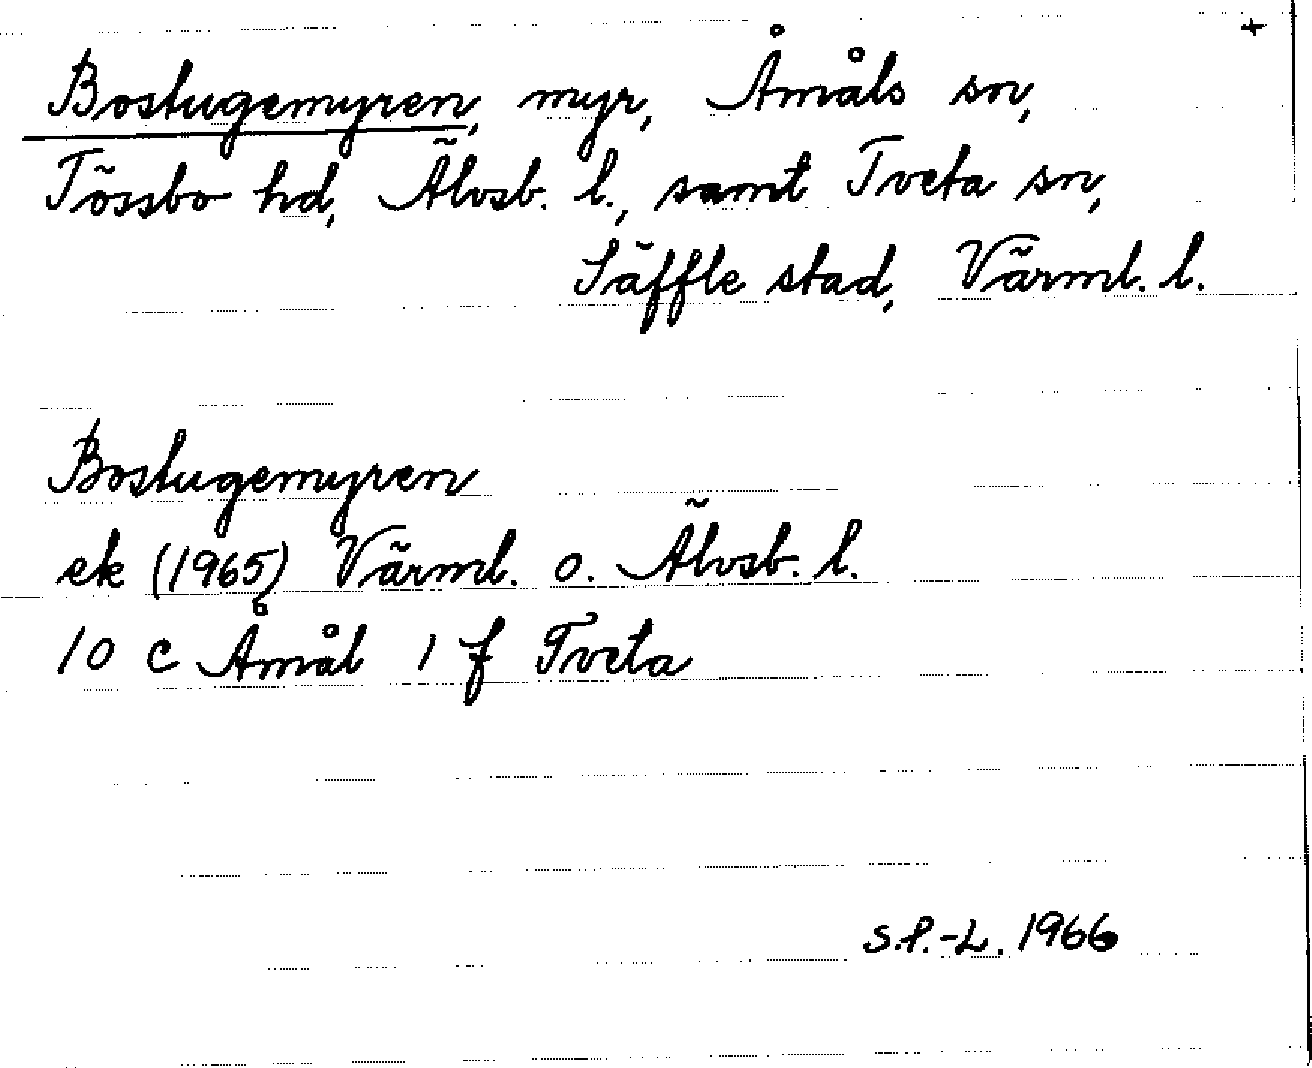 +
Bostugemyren, myr, Åmåls sn,
Tössbo hd, Älvsb. l., samt Tveta sn,
Säffle stad, Värml. l.
Bostugemyren
ek (1965) Värml. o. Älvsb. l.
10 c Åmål 1 f Tveta
S.P.-L. 1966